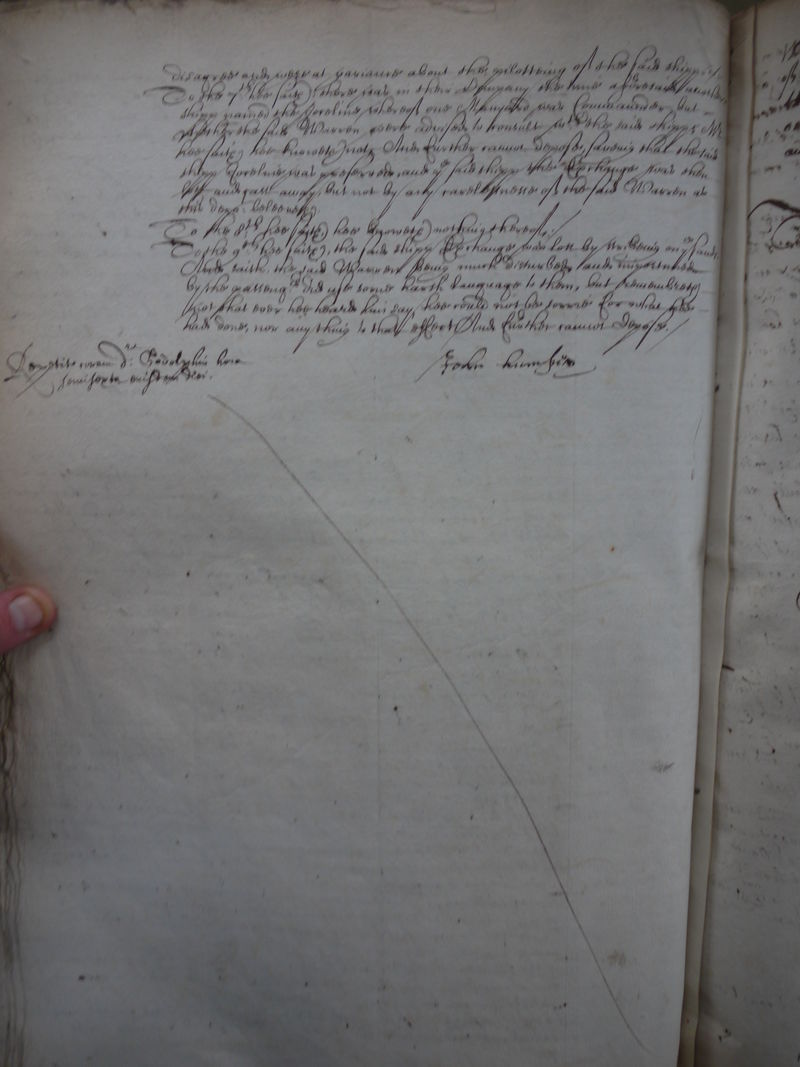 disagree and were at variance about the pilotting of the said shipp
To the 7th hee saith, there was in their Company the tyme aforesaid another
shipp named the Joceline whereof one was Commander, but
whether the said Warren were advised to consult with the said shipps
hee saith hee knoweth not, And further cannot depose, saving that the said
shipp Joceline was preserved, and the said shipp the Exchange was then
lost and cast away, but not by any carelessnesse of the said Warren as
this depot beleeveth.
To the 8th hee saith hee knoweth nothing thereof.
To the 9th hee saith, the said shipp Exchange was lost by striking on the sands
And saith the said Warren being much disturbed and importuned
by the passengers did use some harsh language to them, but remembreth
not that ever hee heard him say, hee could not be sorrie for what hee
had done, nor any thing to that effect And further cannot depose.
coram dre Godolphin
John